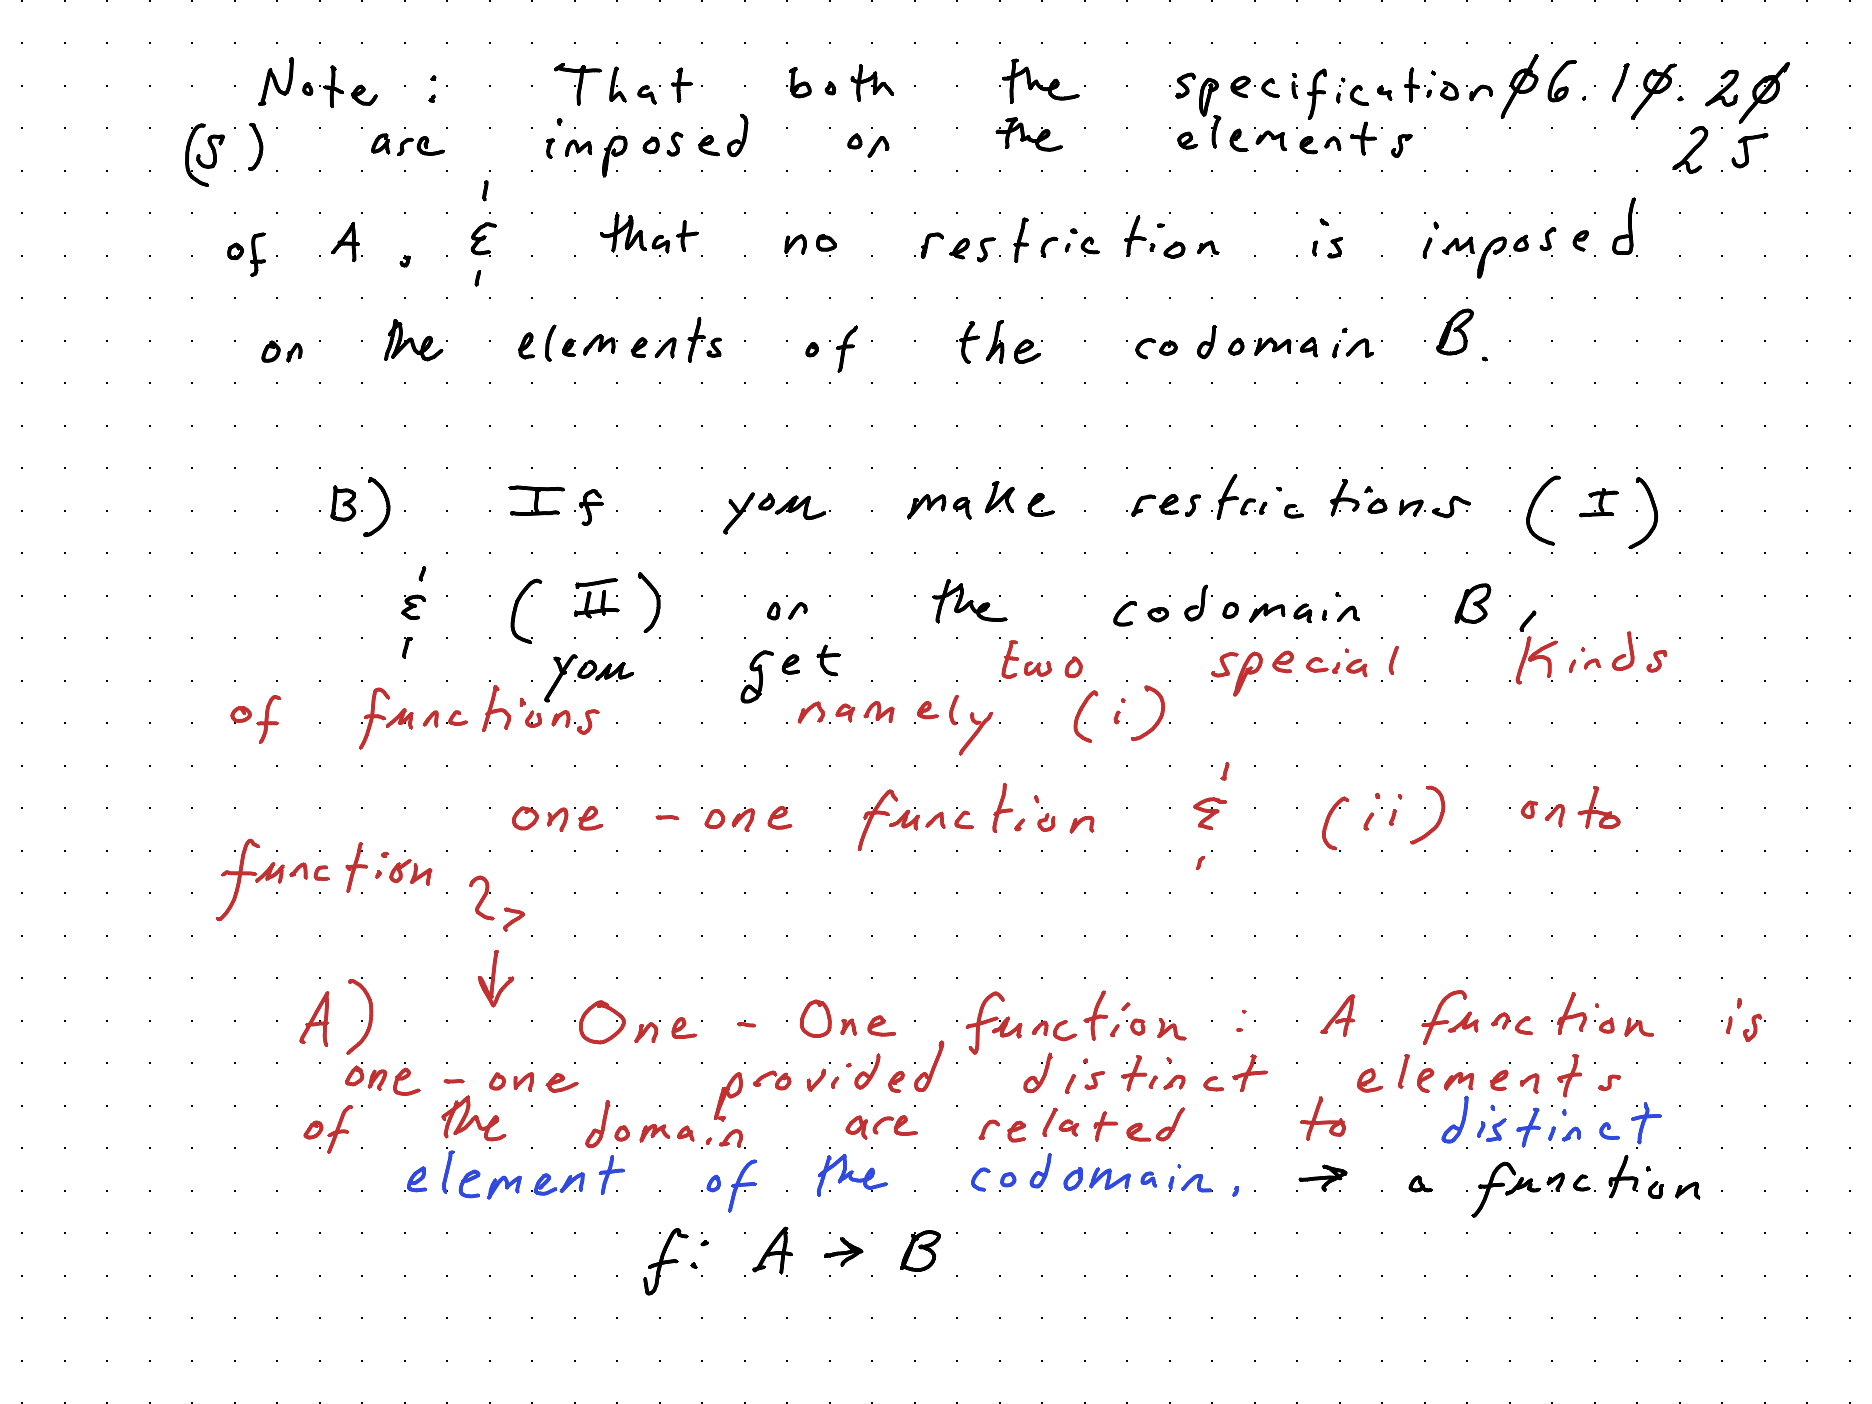 Note : That both the specification 06.10.20
(s) are imposed on the elements 25
of A, & that no restriction is imposed
on the elements of the codomain B.
B) If you make restrictions (I)
& (II) on the codomain B,
you get two special kinds
of functions namely (i)
one-one function & (ii) onto
function
↓
A) One-One function : A function is
one-one provided distinct elements
of the domain are related to distinct
element of the codomain. → a function
f: A → B